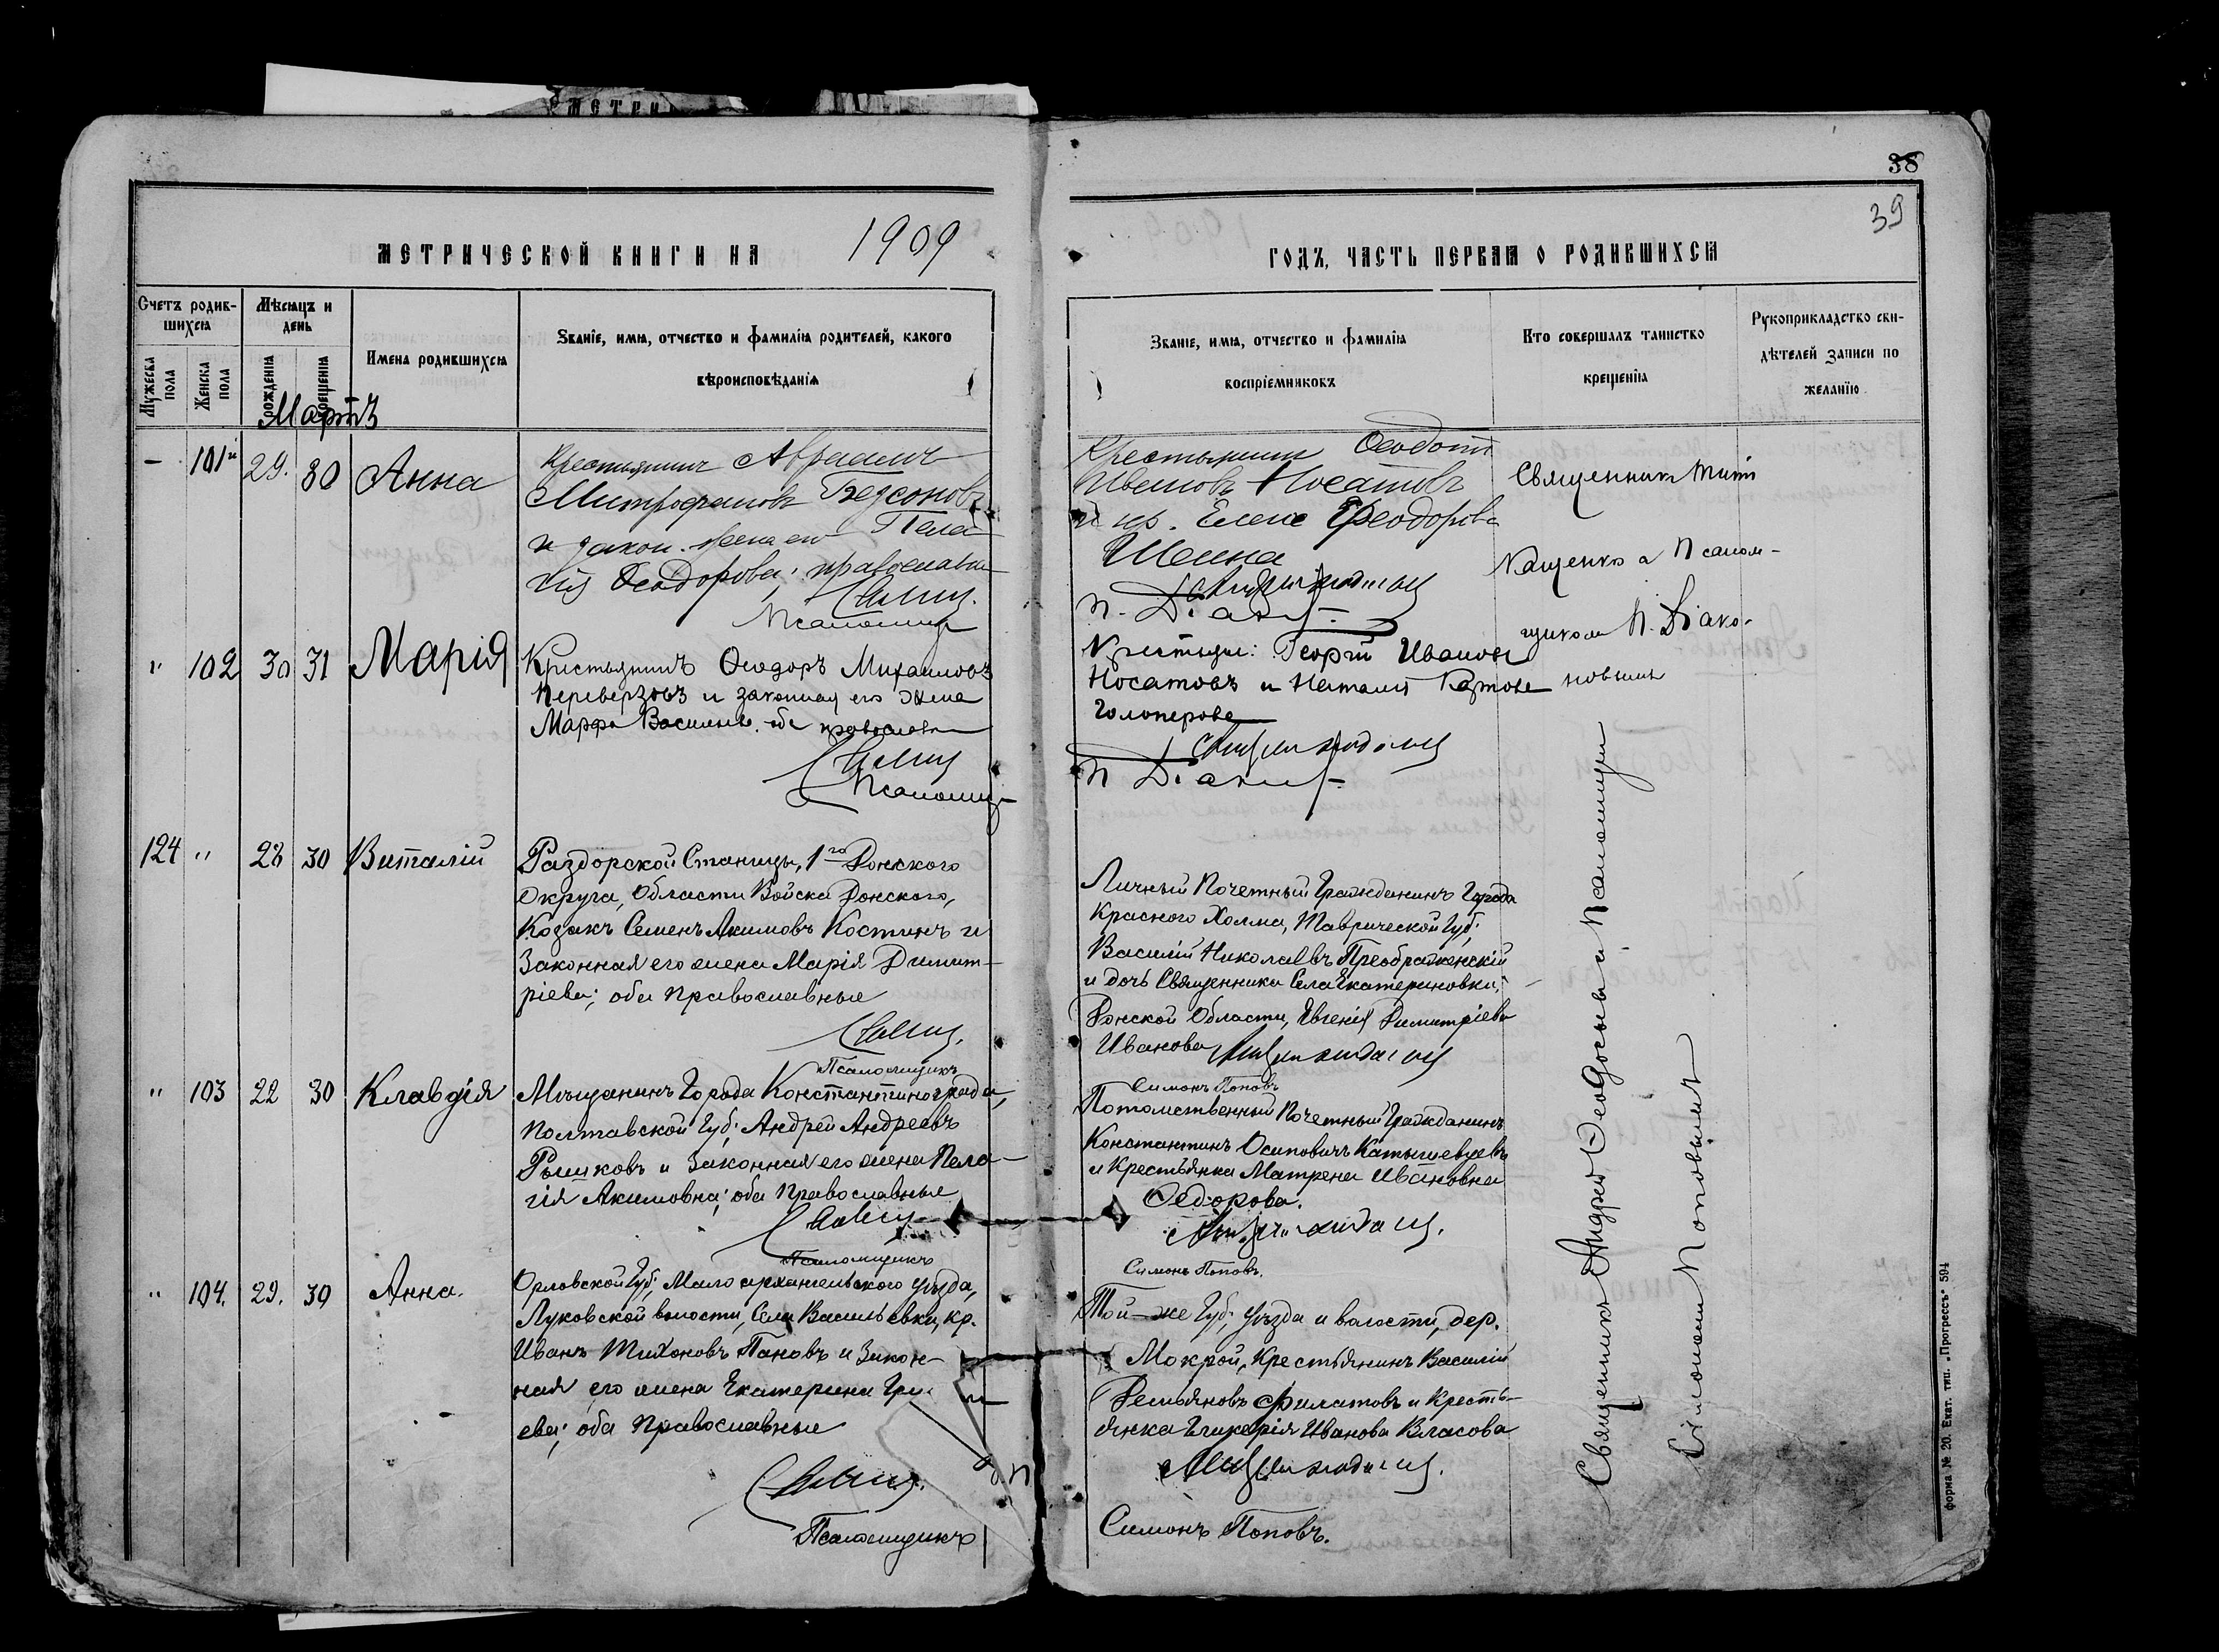 МЕТРИ
38
39
МЕТРИЧЕСКОЙ КНИГИ НА 1909
ГОДЪ, ЧАСТЬ ПЕРВАЯ О РОДИВШИХСЯ
Счетъ родившихся
Мужеска пола
Женска пола
Мѣсяцъ и день
рожденія
крещенія
Имена родившихся
Званіе, имя, отчество и фамилія родителей, какого
вѣроисповѣданія
Званіе, имя, отчество и фамилія
воспріемниковъ
Кто совершалъ таинство
крещенія
Рукоприкладство сви-
дѣтелей записи по
желанію
Мартъ
- 101 29. 30 Анна
Крестьянинъ Авраамъ
Митрофановъ
и закон. жена его Пела-
гія Ѳеодорова; православн
Псаломщ
Крестьянинъ Ѳеодотъ
Ивановъ Носатовъ
и кр. Елена Ѳеодорова
Шеина
Священникъ Титъ
Кащенко и Псалом-
щикомъ П. Діако-
новымъ
" 102 30 31 Марія
Крестьянинъ Ѳеодоръ Михаиловъ
Переверзовъ и законная его жена
Марфа Васильева. оба православн
Псаломщ
Крестьяне: Георгій Ивановъ
Носатовъ и Наталія
Голоперова
124 " 28 30 Виталій
Раздорской Станицы, 1го Донского
Округа, Области Войска Донского,
Козакъ Семенъ Акимовъ Костинъ и
Законная его жена Марія Димит-
ріева; оба Православные
Псаломщикъ
Личный Почетный Гражданинъ Города
Красного Холма, Таврической Губ;
Василій Николаевъ Преображенскій
и дочь Священника Села Екатериновки,
Донской Области, Евгенія Димитріева
Иванова
Симонъ Поповъ
" 103 22 30 Клавдія
Мѣщанинъ Города Константинограда,
Полтавской Губ; Андрей Андреевъ
и Законная его жена Пела-
гія Акимовна; оба Православные
Псаломщикъ
Потомственный Почетный Гражданинъ
Константинъ Осиповичъ
и Крестьянка Матрена Ивановна
Ѳедорова.
Симонъ Поповъ.
" 104. 29. 30 Анна.
Орловской Губ; Мало архангельского уѣзда,
Луковской волости, Села Васильевки, кр.
Иванъ Тихоновъ Пановъ и Закон-
ная его жена Екатерина
ева; оба Православные
Псаломщикъ
Той-же Губ; уѣзда и волости, дер.
Мокрой, Крестьянинъ Василій
Демьяновъ Филатовъ и Кресть-
янка Гликерія Иванова Власова
Симонъ Поповъ.
Священникъ Андрей Ѳеодосьевъ и Псаломщи
Симономъ Поповымъ
форма № 20. Екат. тип. „Прогрессъ" 594